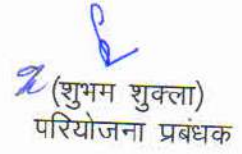 (शुभम शुक्ला)
परियोजना प्रबंधक